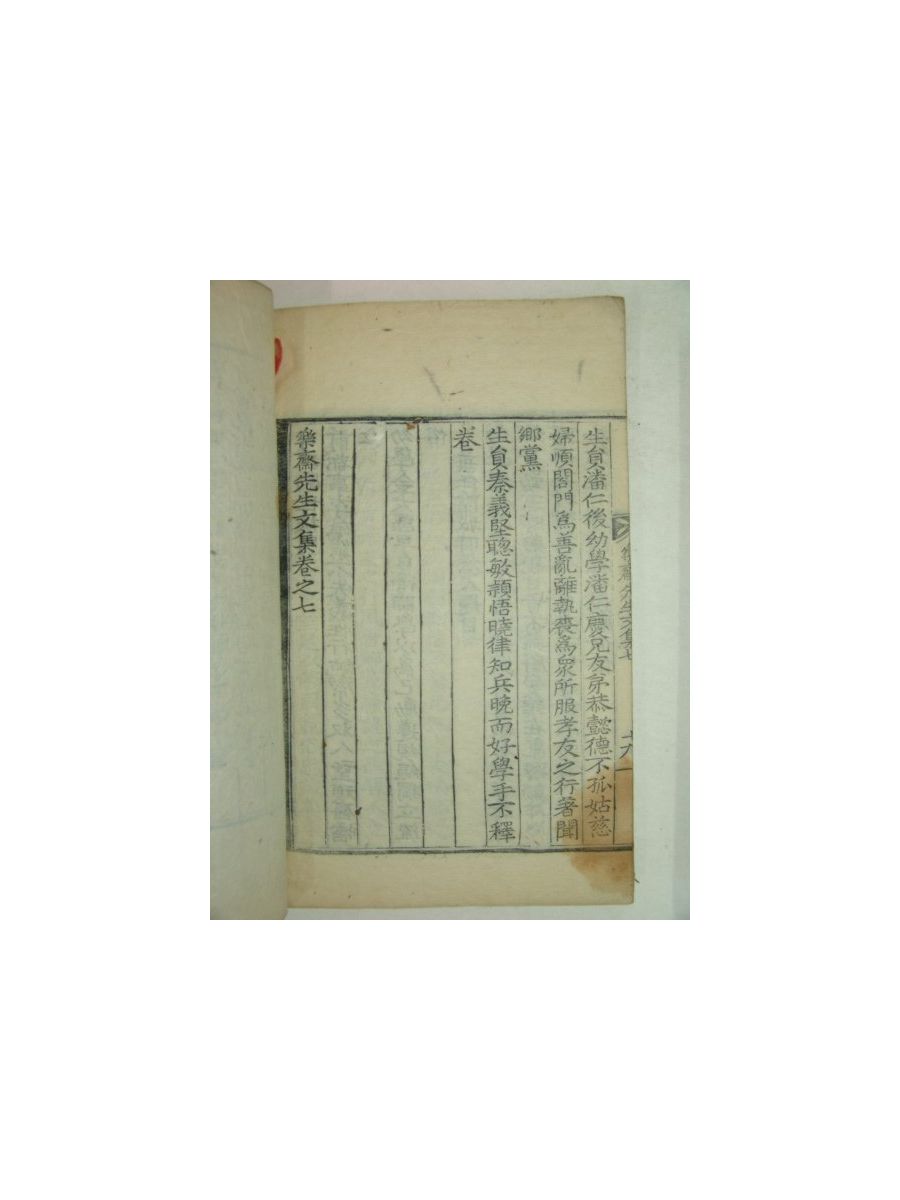 生負潘仁後幼學潘仁慶兄友弟恭懿德不孤姑慈
婦順閤門爲善亂離執喪爲衆所服孝友之行著聞
鄉黨
生負秦義堅聰敏穎悟曉律知兵晚而好學手不釋
卷
樂齋先生文集卷之七
樂齋先生文集 七
十六